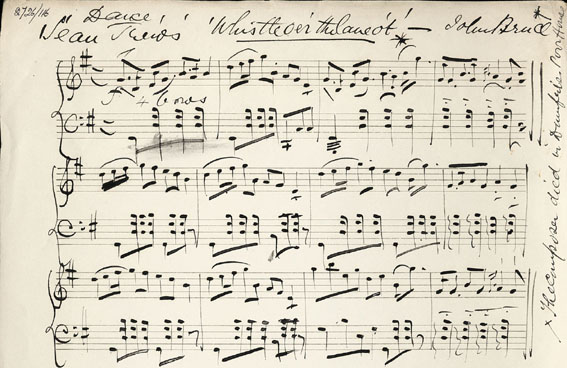 Q726/116
Dance
Jean 'Whistle o'er the lave o't' — John Bruce
4 bows
x The composer died in Dumfries Workhouse